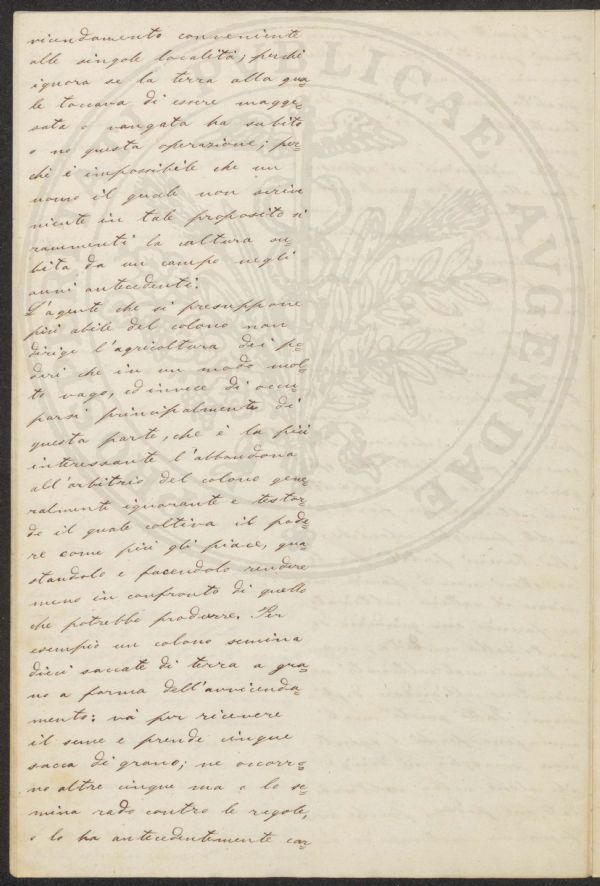 vicendamento conveniente
alle singole località; perchè
ignora se la terra alla qua=
le toccava di essere magge=
sata o vangata ha subito
o no questa operazione; per=
chè è impossibile che un
uomo il quale non scrive
niente in tale proposito si
rammenti la coltura su=
bita da un campo negli
anni antecedenti.
L'agente che si presuppone
più abile del colono non
dirige l'agricoltura dei po=
deri che in un modo mol=
to vago, ed invece di occu=
parsi principalmente di
questa parte, che è la più
interessante l'abbandona
all'arbitrio del colono gene=
ralmente ignorante e testar=
do il quale coltiva il pode=
re come più gli piace, gua=
standolo e facendolo rendere
meno in confronto di quello
che potrebbe produrre. Per
esempio un colono semina
dieci saccate di terra a gra=
no a forma dell'avvicenda=
mento: và per ricevere
il seme e prende cinque
sacca di grano; ne occorro=
no altre cinque ma o lo se=
mina rado contro le regole,
o lo ha antecedentemente car=
PUBLICAE AVGENDAE